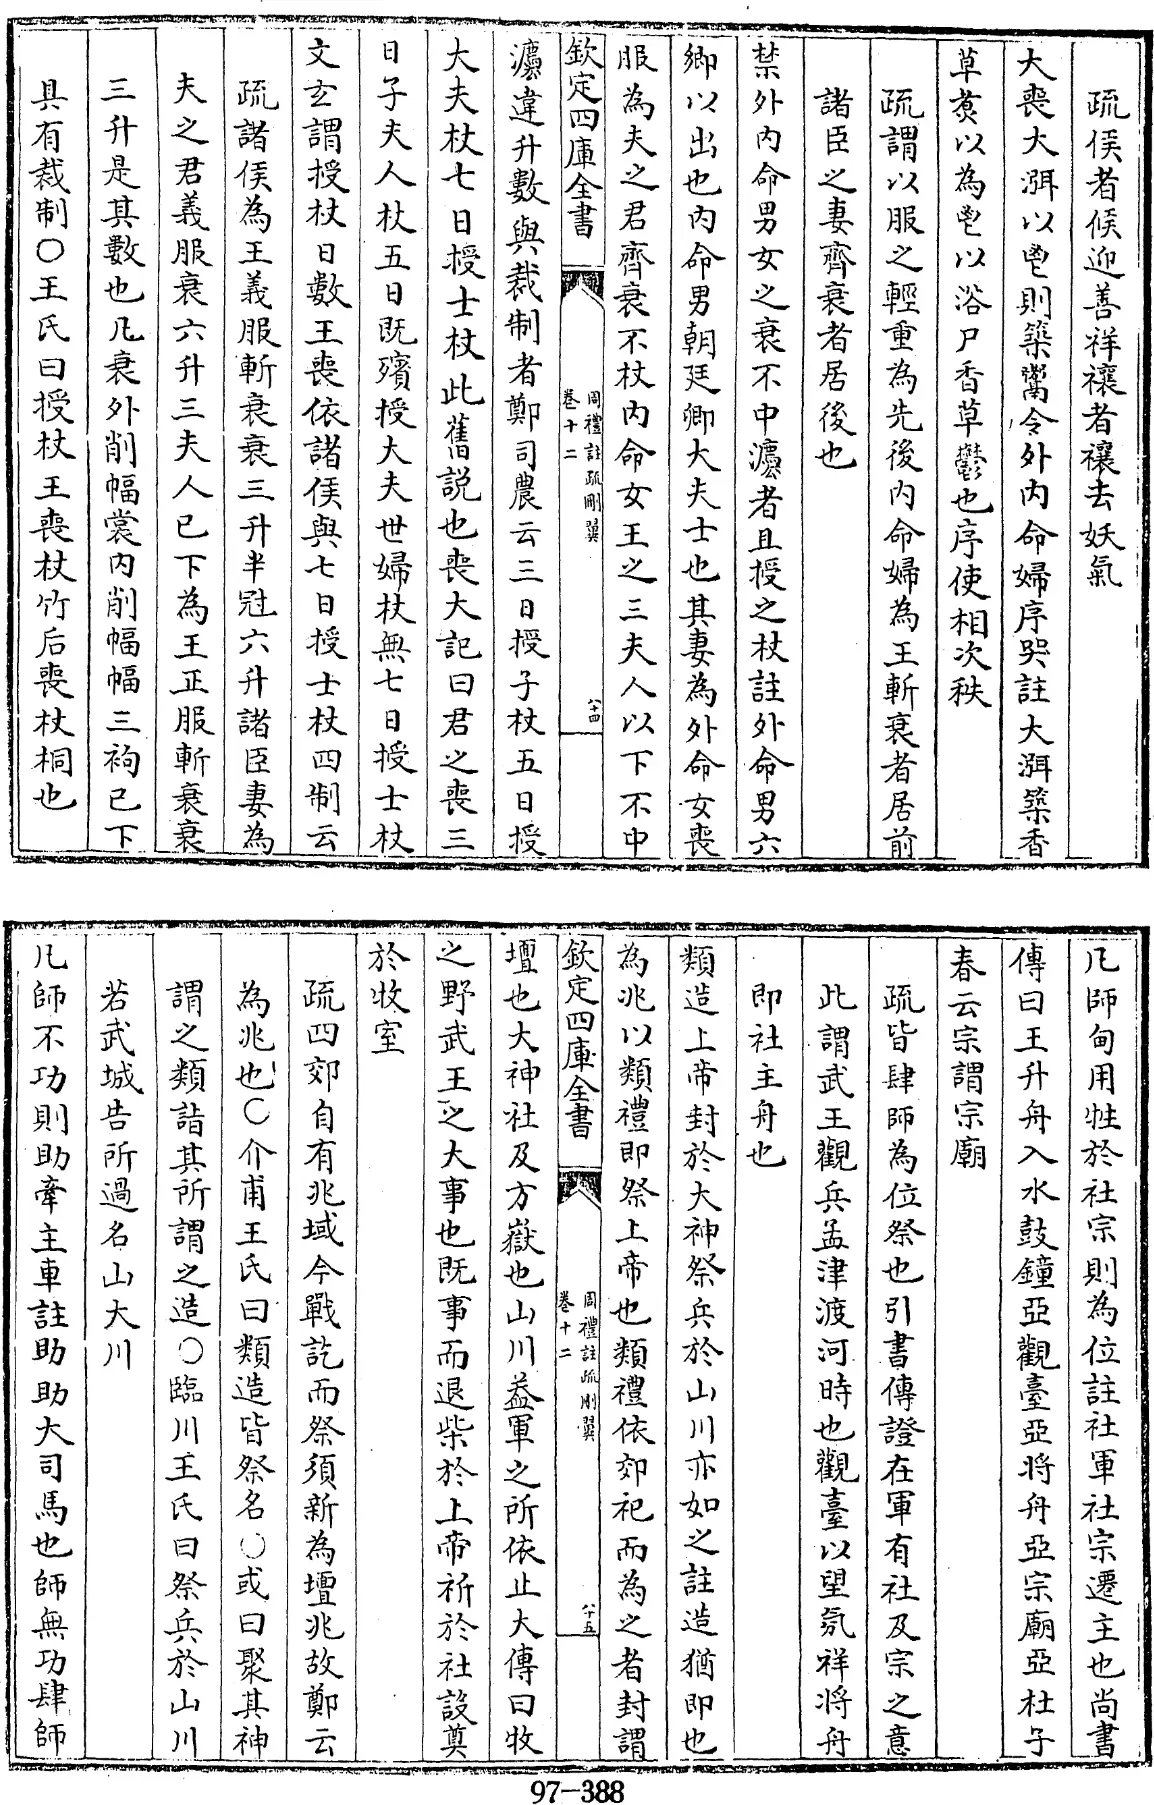 疏侯者候迎善祥禳者禳去妖氣
大喪大渳以鬯則築鬻令外内命婦序哭註大渳築香
草煑以為鬯以浴尸香草鬱也序使相次秩
疏謂以服之輕重為先後内命婦為王斬衰者居前
諸臣之妻齊衰者居後也
禁外内命男女之衰不中灋者且授之杖註外命男六
鄉以出也内命男朝廷卿大夫士也其妻為外命女喪
服為夫之君齊衰不杖内命女王之三夫人以下不中
欽定四庫全書
周禮註疏刪翼
卷十二
八十四
灋違升數與裁制者鄭司農云三日授子杖五日授
大夫杖七日授士杖此舊説也喪大記曰君之喪三
日子夫人杖五日既殯授大夫世婦杖無七日授士杖
文玄謂授杖日數王喪依諸侯與七日授士杖四制云
疏諸侯為王義服斬衰衰三升半冠六升諸臣妻為
夫之君義服衰六升三夫人已下為王正服斬衰衰
三升是其數也凡衰外削幅裳内削幅幅三袧已下
具有裁制〇王氏曰授杖王喪杖竹后喪杖桐也
凡師甸用牲於社宗則為位註社軍社宗遷主也尚書
傳曰王升舟入水鼓鐘亞觀臺亞將舟亞宗廟亞杜子
春云宗謂宗廟
疏皆肆師為位祭也引書傳證在軍有社及宗之意
此謂武王觀兵孟津渡河時也觀臺以望氛祥將舟
即社主舟也
類造上帝封於大神祭兵於山川亦如之註造猶即也
為兆以類禮即祭上帝也類禮依郊祀而為之者封謂
欽定四庫全書
周禮註疏刪翼
卷十二
八十五
壇也大神社及方嶽也山川葢軍之所依止大傳曰牧
之野武王之大事也既事而退柴於上帝祈於社設奠
於牧室
疏四郊自有兆域今戰訖而祭須新為壇兆故鄭云
為兆也〇介甫王氏曰類造皆祭名〇或曰聚其神
謂之類詣其所謂之造〇臨川王氏曰祭兵於山川
若武城告所過名山大川
凡師不功則助牽主車註助助大司馬也師無功肆師
97-388